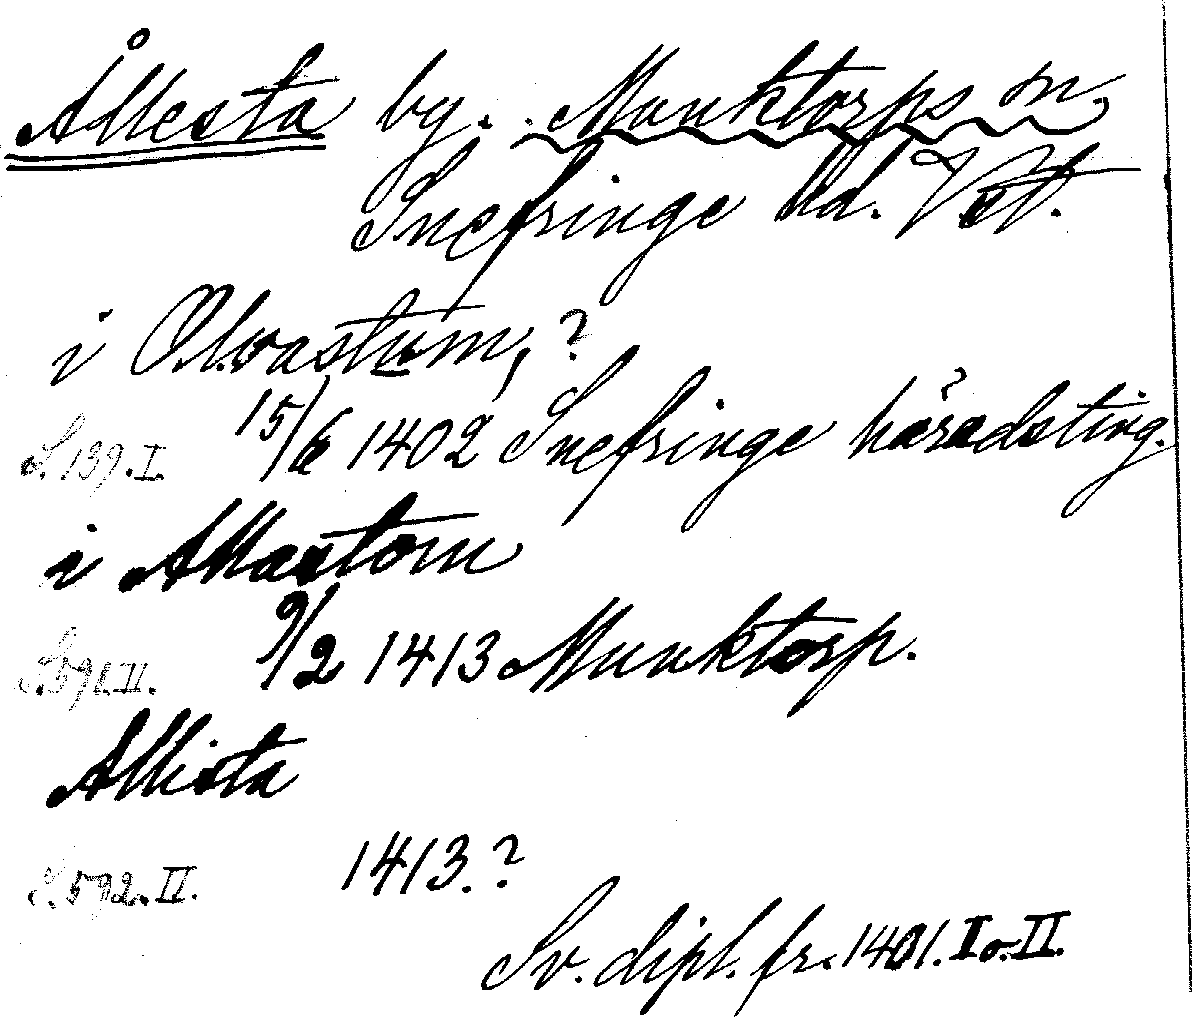 Ållesta by. Munktorps sn.
Snefringe hd. Vstl.
i Olwastum, ?
S. 139. I. 15/6 1402 Snefringe häradsting.
i Allastom
S. 591. II. 9/2 1413 Munktorp.
Allista
S. 592. II. 1413. ?
Sv. dipl. fr. 1401. I o. II.